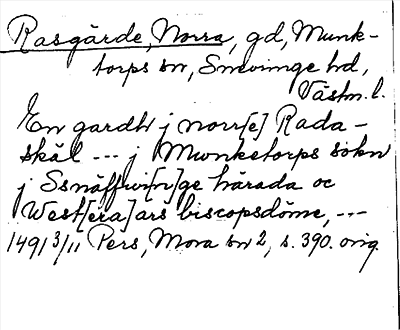 Rasgärde, Norra, gd, Munk-
torps sn, Snevinge hd,
Västm. l.
En gardh j norr[e] Rada-
skäl --- j Munketorps sokn
j Ssnäffwi[n]ge härada oc
West[era]ars biscopsdöme, ---
1491 3/11 Pers, Mora sn 2, s. 390. orig